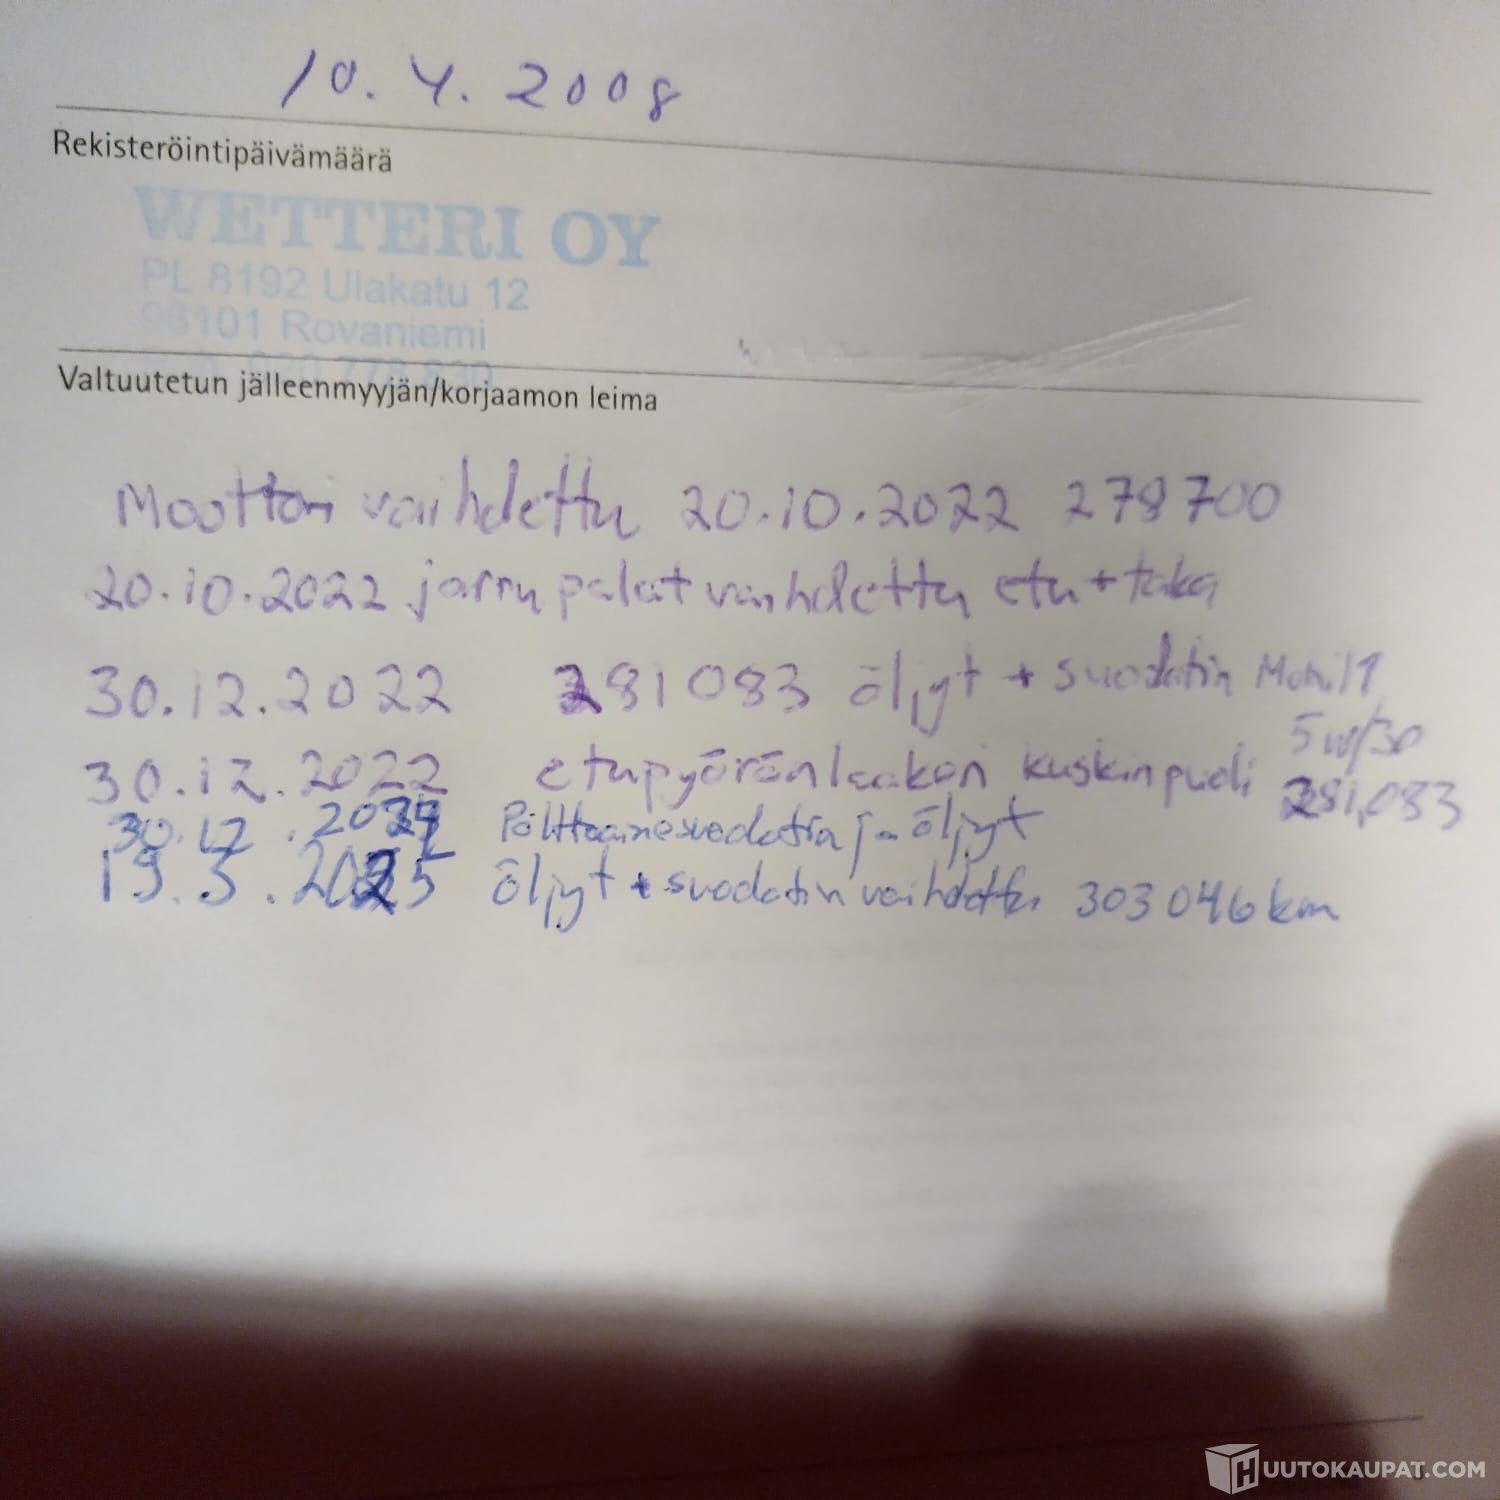 10.4.2008
Rekisteröintipäivämäärä
WETTERI OY
PL 8192 Ulakatu 12
96101 Rovaniemi
Valtuutetun jälleenmyyjän/korjaamon leima
Moottori vaihdettu 20.10.2022 278700
20.10.2022 jarru palat vaihdettu etu + taka
30.12.2022 281083 öljyt + suodatin Mobil 1
5w/30
30.12.2022 etupyöränlaakeri kuskinpuoli 281,083
30.12.2024 Polttoainesuodatin ja öljyt
19.5.2025 öljyt + suodatin vaihdettu 303046 km
HUUTOKAUPAT.COM